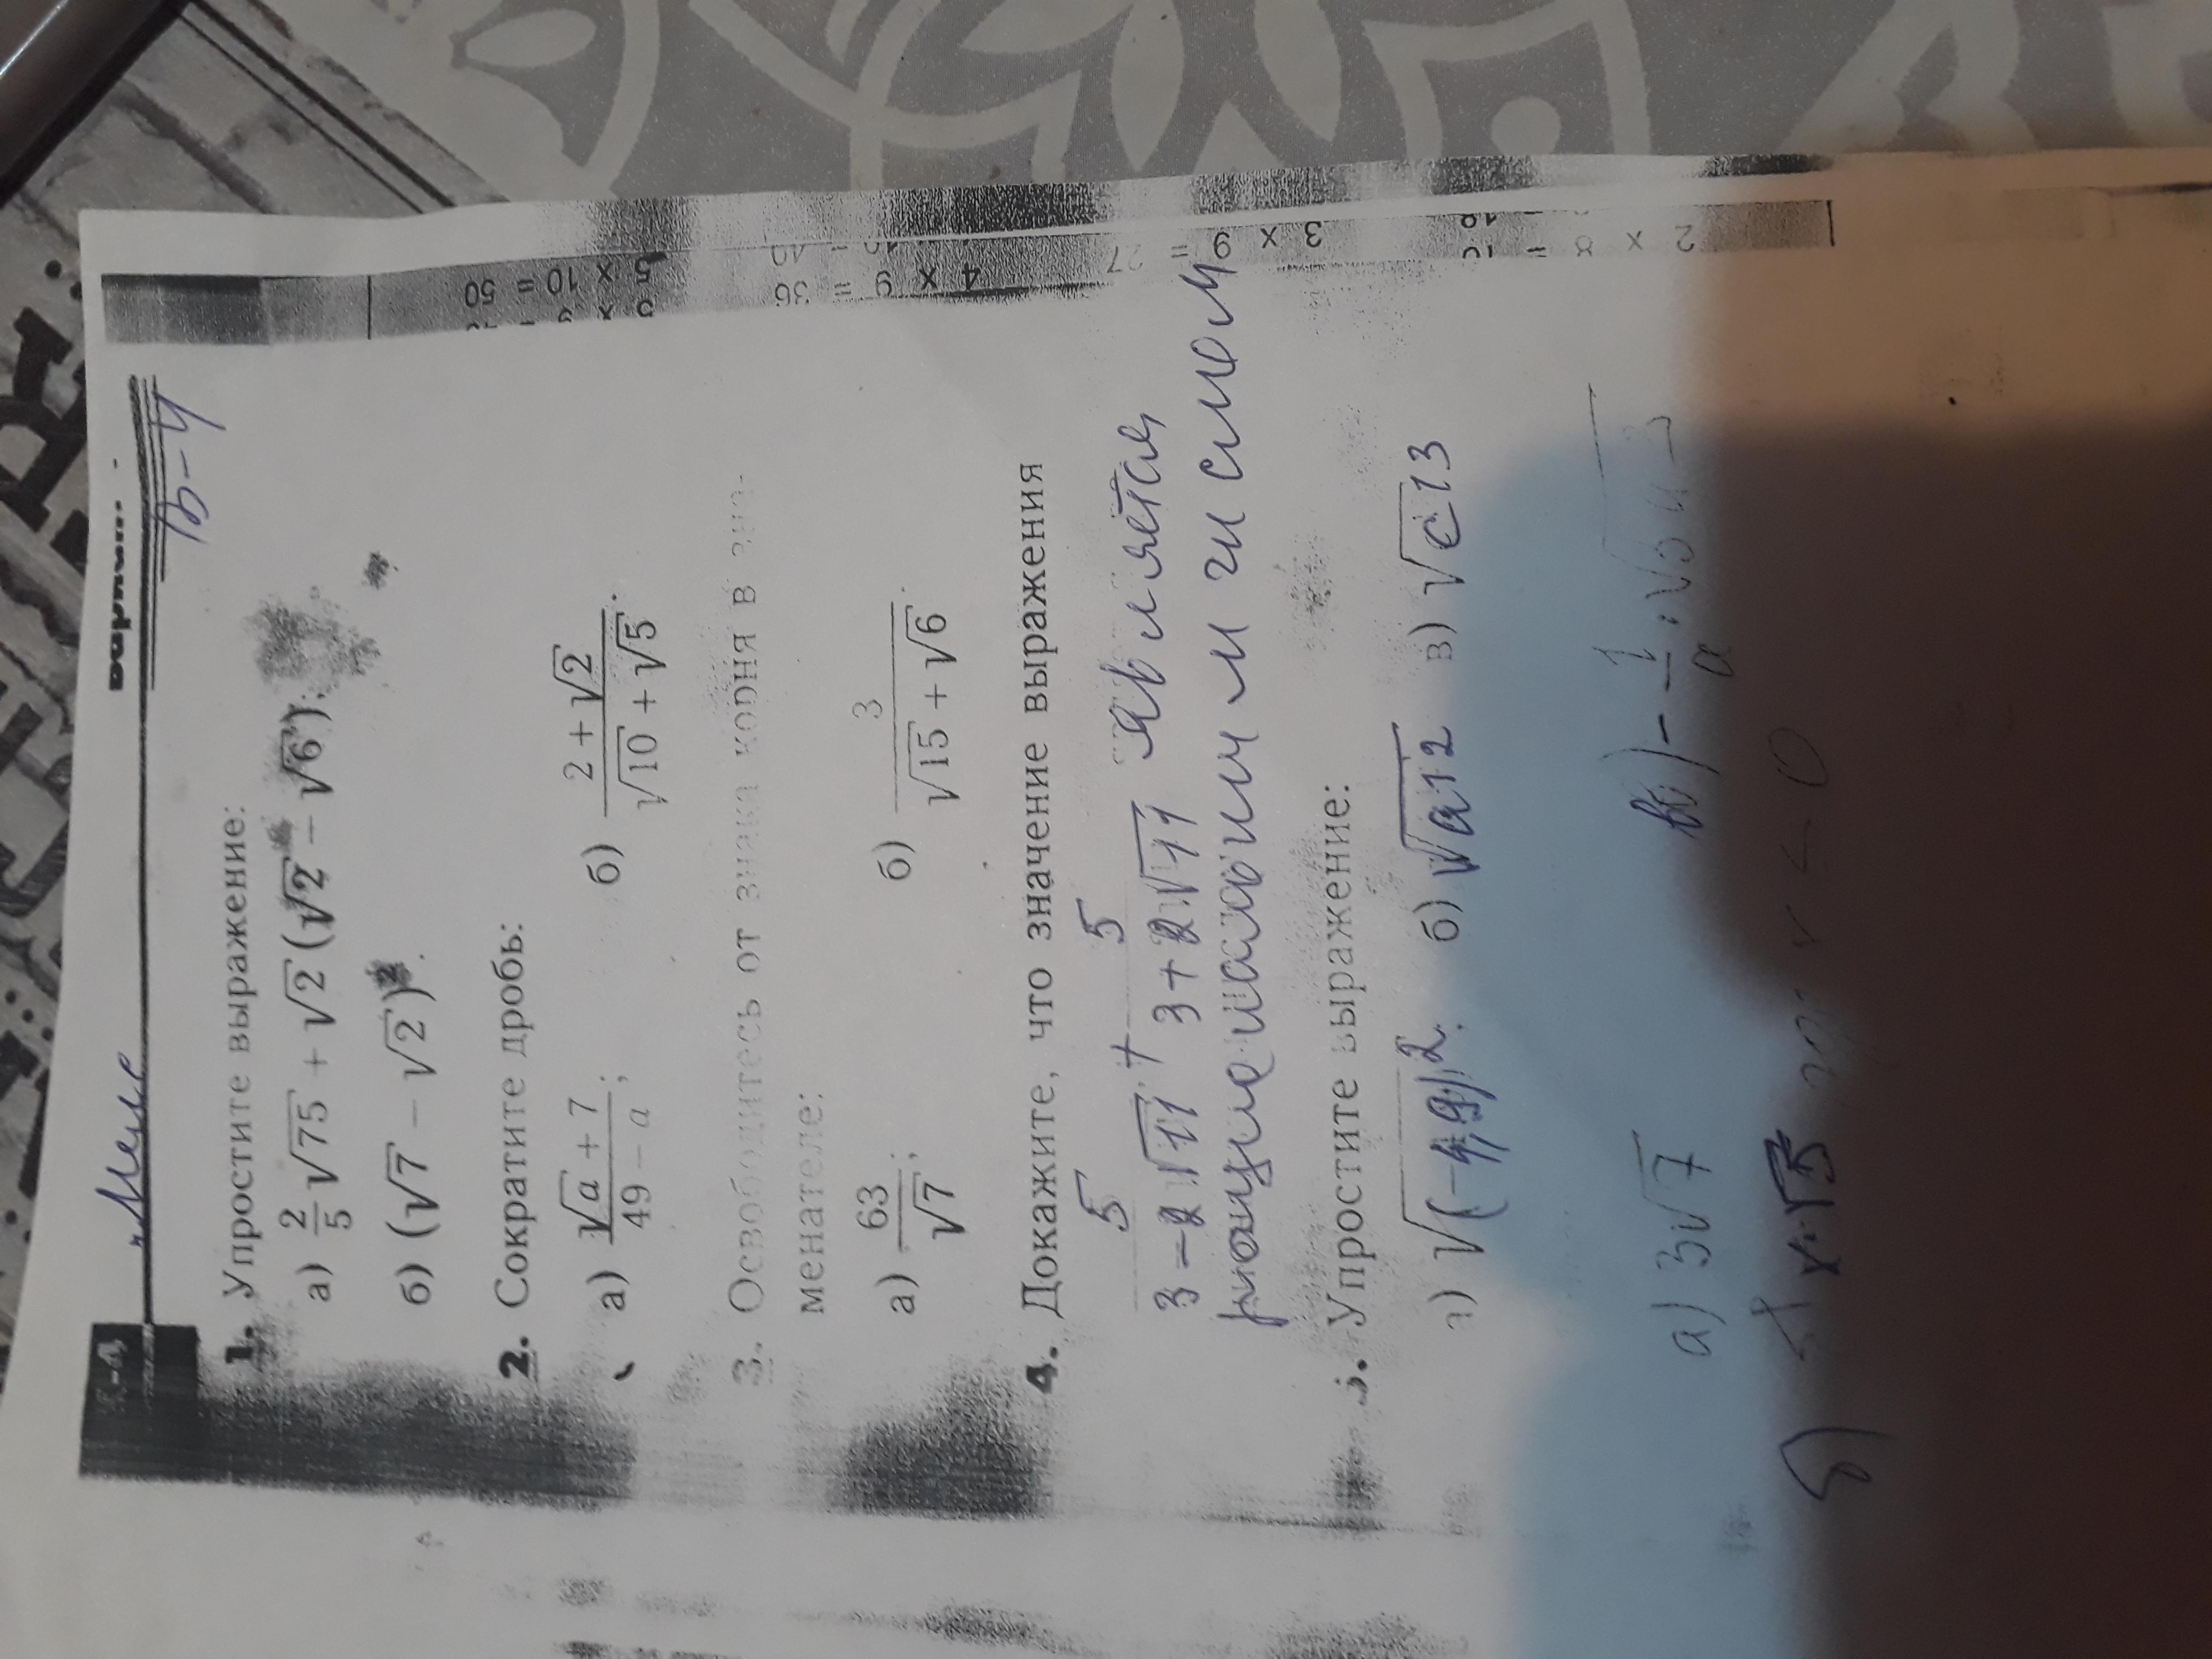 К-4
В-4
1. Упростите выражение:
а) 2/5 √75 + √2 (√2 − √6);
б) (√7 − √2)².
2. Сократите дробь:
а) (√a + 7)/(49 − a); б) (2 + √2)/(√10 + √5).
3. Освободитесь от знака корня в зна-
менателе:
а) 63/√7; б) 3/(√15 + √6).
4. Докажите, что значение выражения
5/(3 − 2√11) + 5/(3 + 2√11) является
рациональным числом
5. Упростите выражение:
а) √(−4,9)² б) √a12 в) √c13
а) 3√7
б) x√5
5 x 10 = 50
4 x 9 = 36
3 x 9 = 27